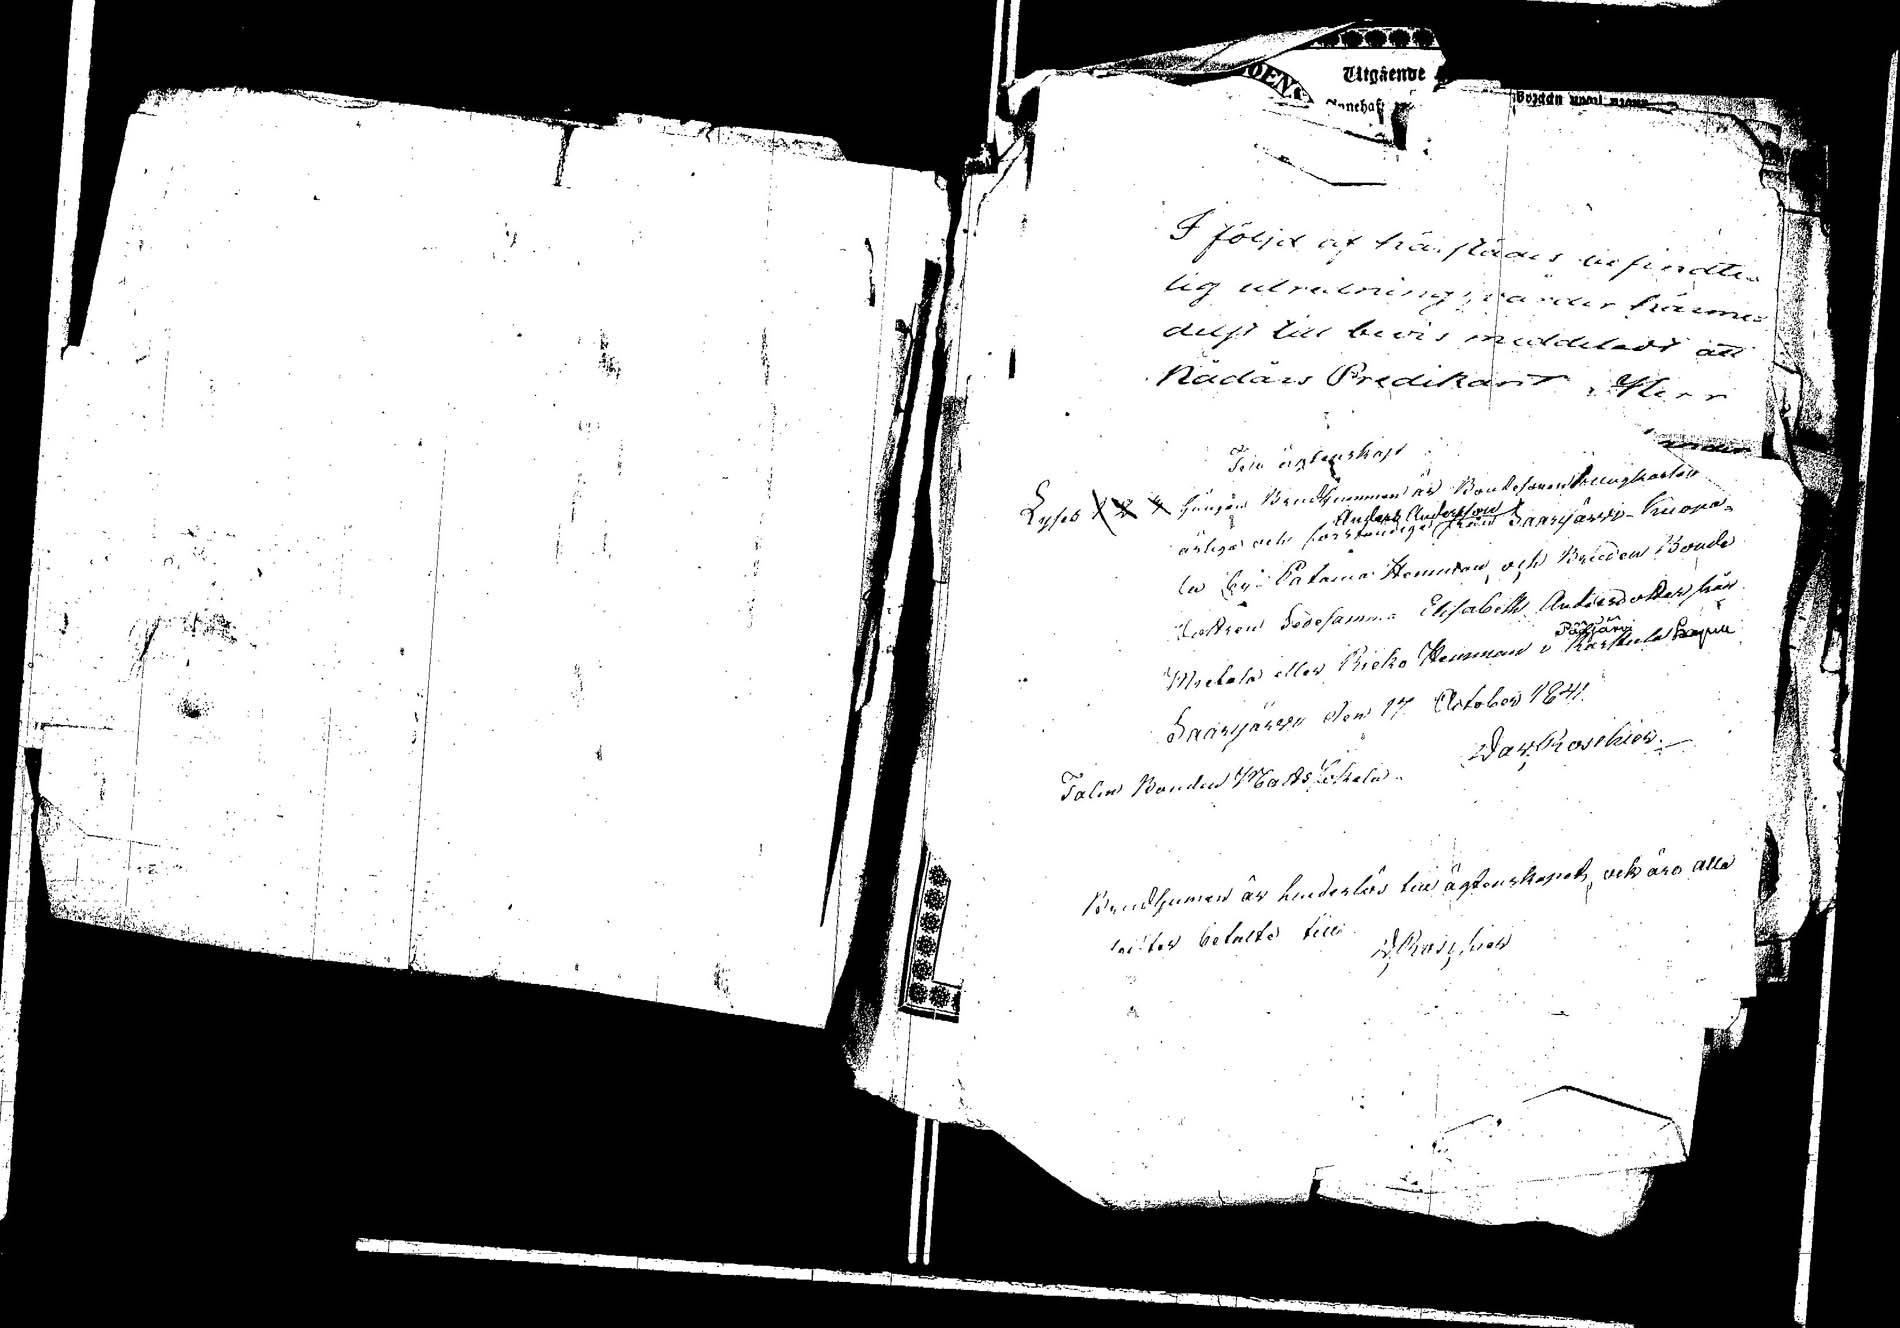 Utgående
Innehaf
I följd af härstädes befindte-
lig utredning, varder härme-
delst till bevis meddeladt att
Nådårs Predikant Herr
Till ägtenskap
Lyses 1 2 3 Gången Brudgummen är Bondesonen Ynglingen
Anders Andersson
ärlige och förståndige från Saarijärvi
by Palama Hemman, och Bruden Bonde
dottren Gudesamma Elisabeth Andersdotter från
Mietala eller Rieko Hemman i Karstula Kapell
Saarijärvi den 17 October 1841.
Dav. Roschier
Talm. Bonden Matts
Brudgumen är hinderlös till ägtenskapet, och äro alla
betalte till
D. Roschier